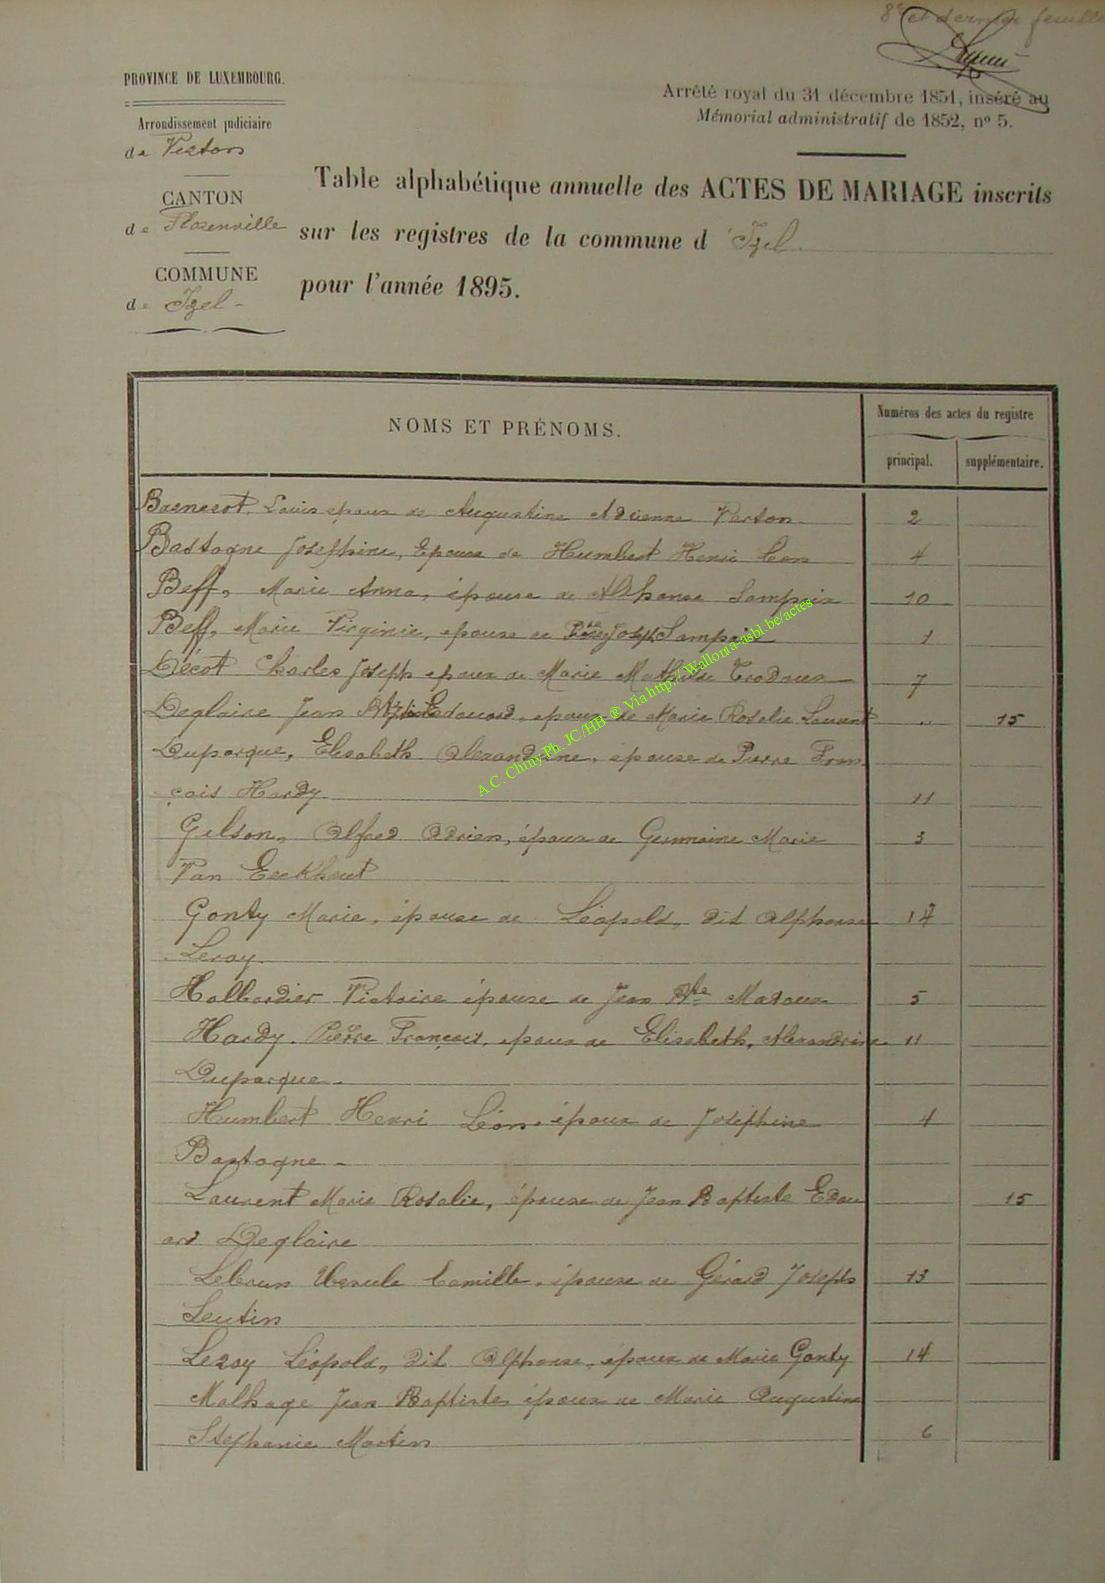 8e et dernier feuille
PROVINCE DE LUXEMBOURG.
Arrêté royal du 31 décembre 1851, inséré au
Mémorial administratif de 1852, nº 5.
Arrondissement judiciaire
de Virton
CANTON
de Florenville
COMMUNE
de Izel -
Table alphabétique annuelle des ACTES DE MARIAGE inscrits
sur les registres de la commune d' Izel.
pour l'année 1895.
NOMS ET PRÉNOMS.
Numéros des actes du registre
principal. supplémentaire.
Louis époux de Augustine Adrienne 2
Bastogne Joséphine, Epouse de Humbert Henri 4
Beff, Marie Anna, épouse de Alphonse 10
Beff, Marie Virginie, épouse de Joseph 1
Décot Charles Joseph époux de Marie Mathilde 7
Deglaire Jean Bte Edouard, époux de Marie Rosalie Laurent " 15
Duparque, Elisabeth Alexandrine, épouse de Pierre Fran
çois Hardy 11
Gilson, Alfred Adrien, époux de Germaine Marie 3
Van Eeckhout
Gonty Marie, épouse de Léopold, dit Alphonse 14
Leroy.
Halbardier Victoire épouse de Jean Bte 5
Hardy. Pierre François, époux de Elisabeth, Alexandrine 11
Duparque -
Humbert Henri Léon, époux de Joséphine 4
Bastogne -
Laurent Marie Rosalie, épouse de Jean Baptiste Edou 15
ard Deglaire
Lebrun Camille, épouse de Gérard Joseph 13
Leutin
Leroy Léopold, dit Alphonse, époux de Marie Gonty 14
Malhage Jean Baptiste époux de Marie Augustine
Stéphanie Martin 6
A.C. Chiny Ph. JC/HB ® Via http://Wallonia-asbl.be/actes